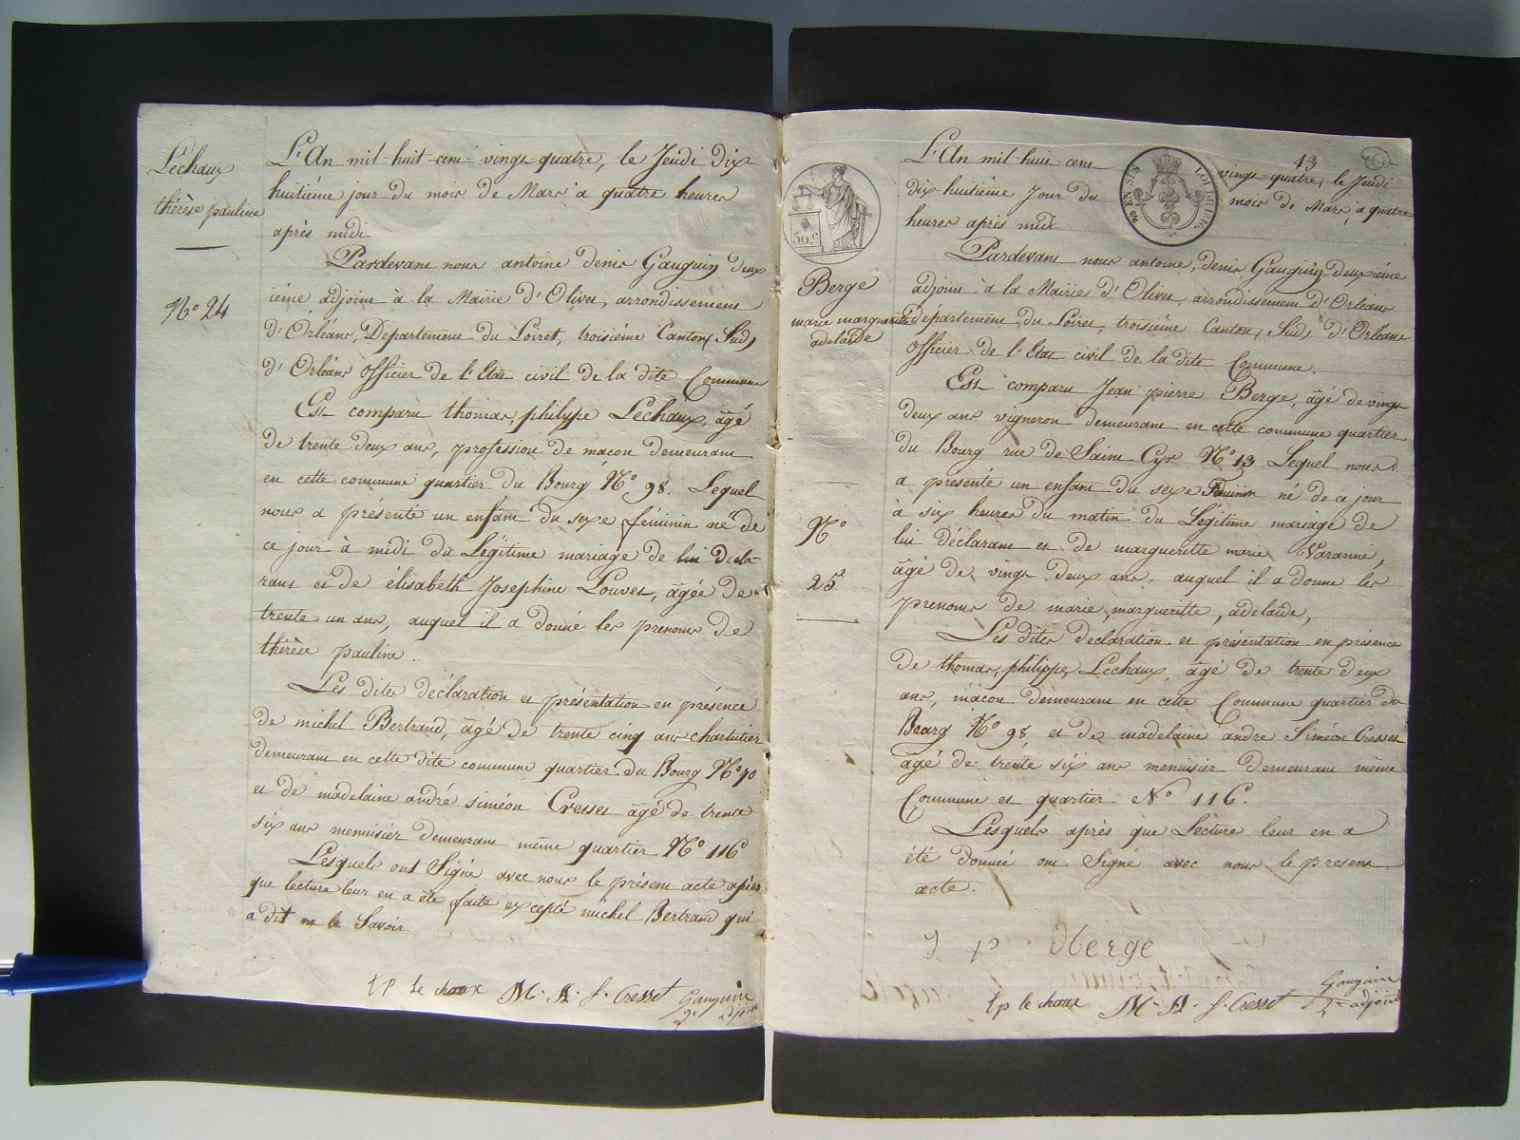 Lechaux
thérèse pauline
N° 24
L'An mil huit cent vingt quatre, le Jeudi dix
huitième jour du mois de Mars a quatre heures
après midi
Pardevant nous antoine denis Gauguin deux
ième adjoint à la Mairie d'Olivet, arrondissement
d'Orléans, Departement du Loiret, troisième Canton Sud,
d'Orléans officier de l'Etat civil de la dite Commune
Est comparu thomas, philippe Lechaux, âgé
de trente deux ans, profession de macon demeurant
en cette commune quartier du Bourg N° 98. Lequel
nous a présenté un enfant du sexe féminin né de
ce jour à midi du Légitime mariage de lui décla-
rant et de élisabeth Josephine Louvet, âgée de
trente un ans, auquel il a donné les prenoms de
thérèse pauline.
Les dites déclaration et présentation en présence
de michel Bertrand, âgé de trente cinq ans chartutier
demeurant en cette dite commune quartier du Bourg N° 90
et de madelaine andré siméon Cresset âgé de trente
six ans menuisier demeurant même quartier N° 116
Lesquels ont Signé avec nous le présent acte après
que lecture leur en a été faite excepté michel Bertrand qui
a dit ne le Savoir
t p le chaux M. A. S. Cresset Gauguin
2e adjoint
13
L'An mil huit cent vingt quatre, le Jeudi
dix huitième Jour du mois de Mars, a quatre
heures après midi
LOUIS
50 EN SUS
50 c
Berge
marie marguerite
adelaïde
N°
25
Pardevant nous antoine, denis Gauguin deuxième
adjoint à la Mairie d'Olivet, arrondissement d'Orléans
département du Loiret, troisième Canton, Sud, d'Orléans
Officier de l'Etat civil de la dite Commune.
Est comparu Jean pierre Berge, âgé de vingt
deux ans vigneron demeurant en cette commune quartier
du Bourg rue de Saint Cyr N° 13 Lequel nous
a présenté un enfant du sexe Feminin né de ce jour
à six heures du matin du Légitime mariage de
lui déclarant et de margueritte marie Varanne,
âgé de vingt deux ans, auquel il a donné les
prenoms de marie, margueritte, adelaïde,
Les dites declaration et présentation en présence
de thomas, philippe, Lechaux, âgé de trente deux
ans, macon demeurant en cette Commune quartier du
Bourg N° 98 et de madelaine andre Siméon Cresset
âgé de trente six ans menuisier demeurant même
Commune et quartier N° 116.
Lesquels après que Lecture leur en a
été donné ont Signé avec nous le présent
acte.
J p Berge
t p le chaux M. A. S. Cresset Gauguin
2e adjoint